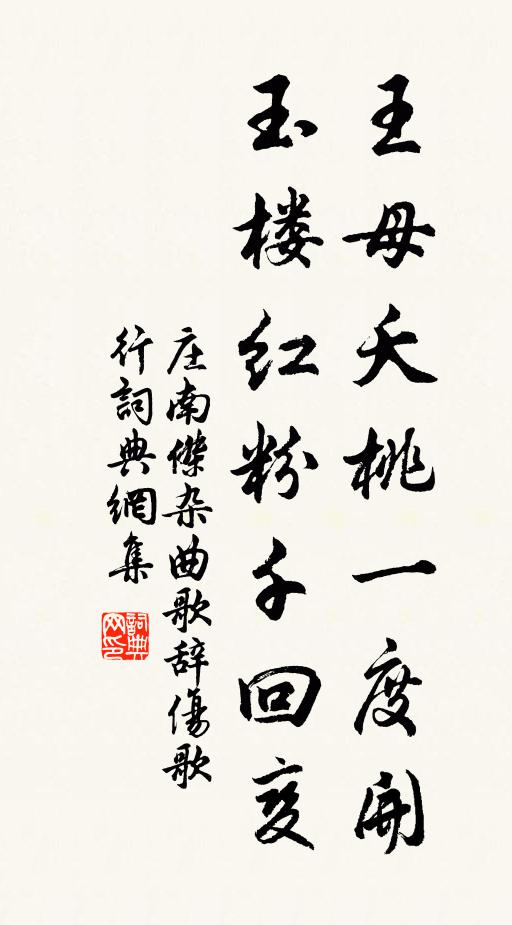 王母夭桃一度開
玉楼红粉千回变
庄南傑杂曲歌辞傷歌
行詞典網集
詞典网印